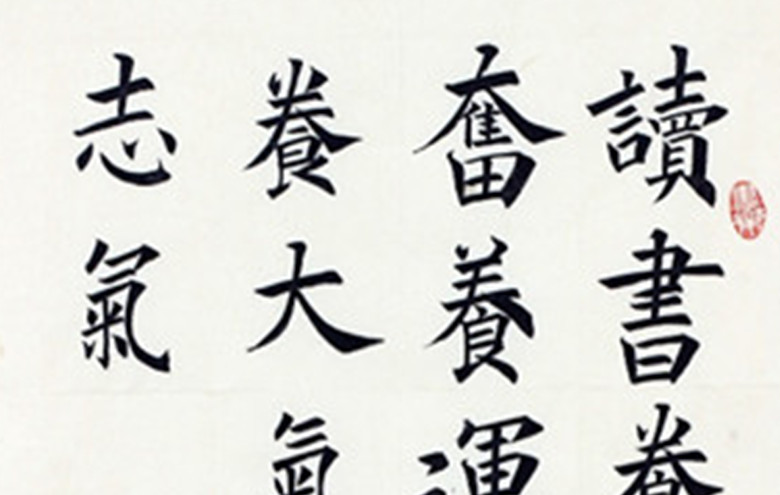 讀書飬
奮養運
飬大氣
志氣